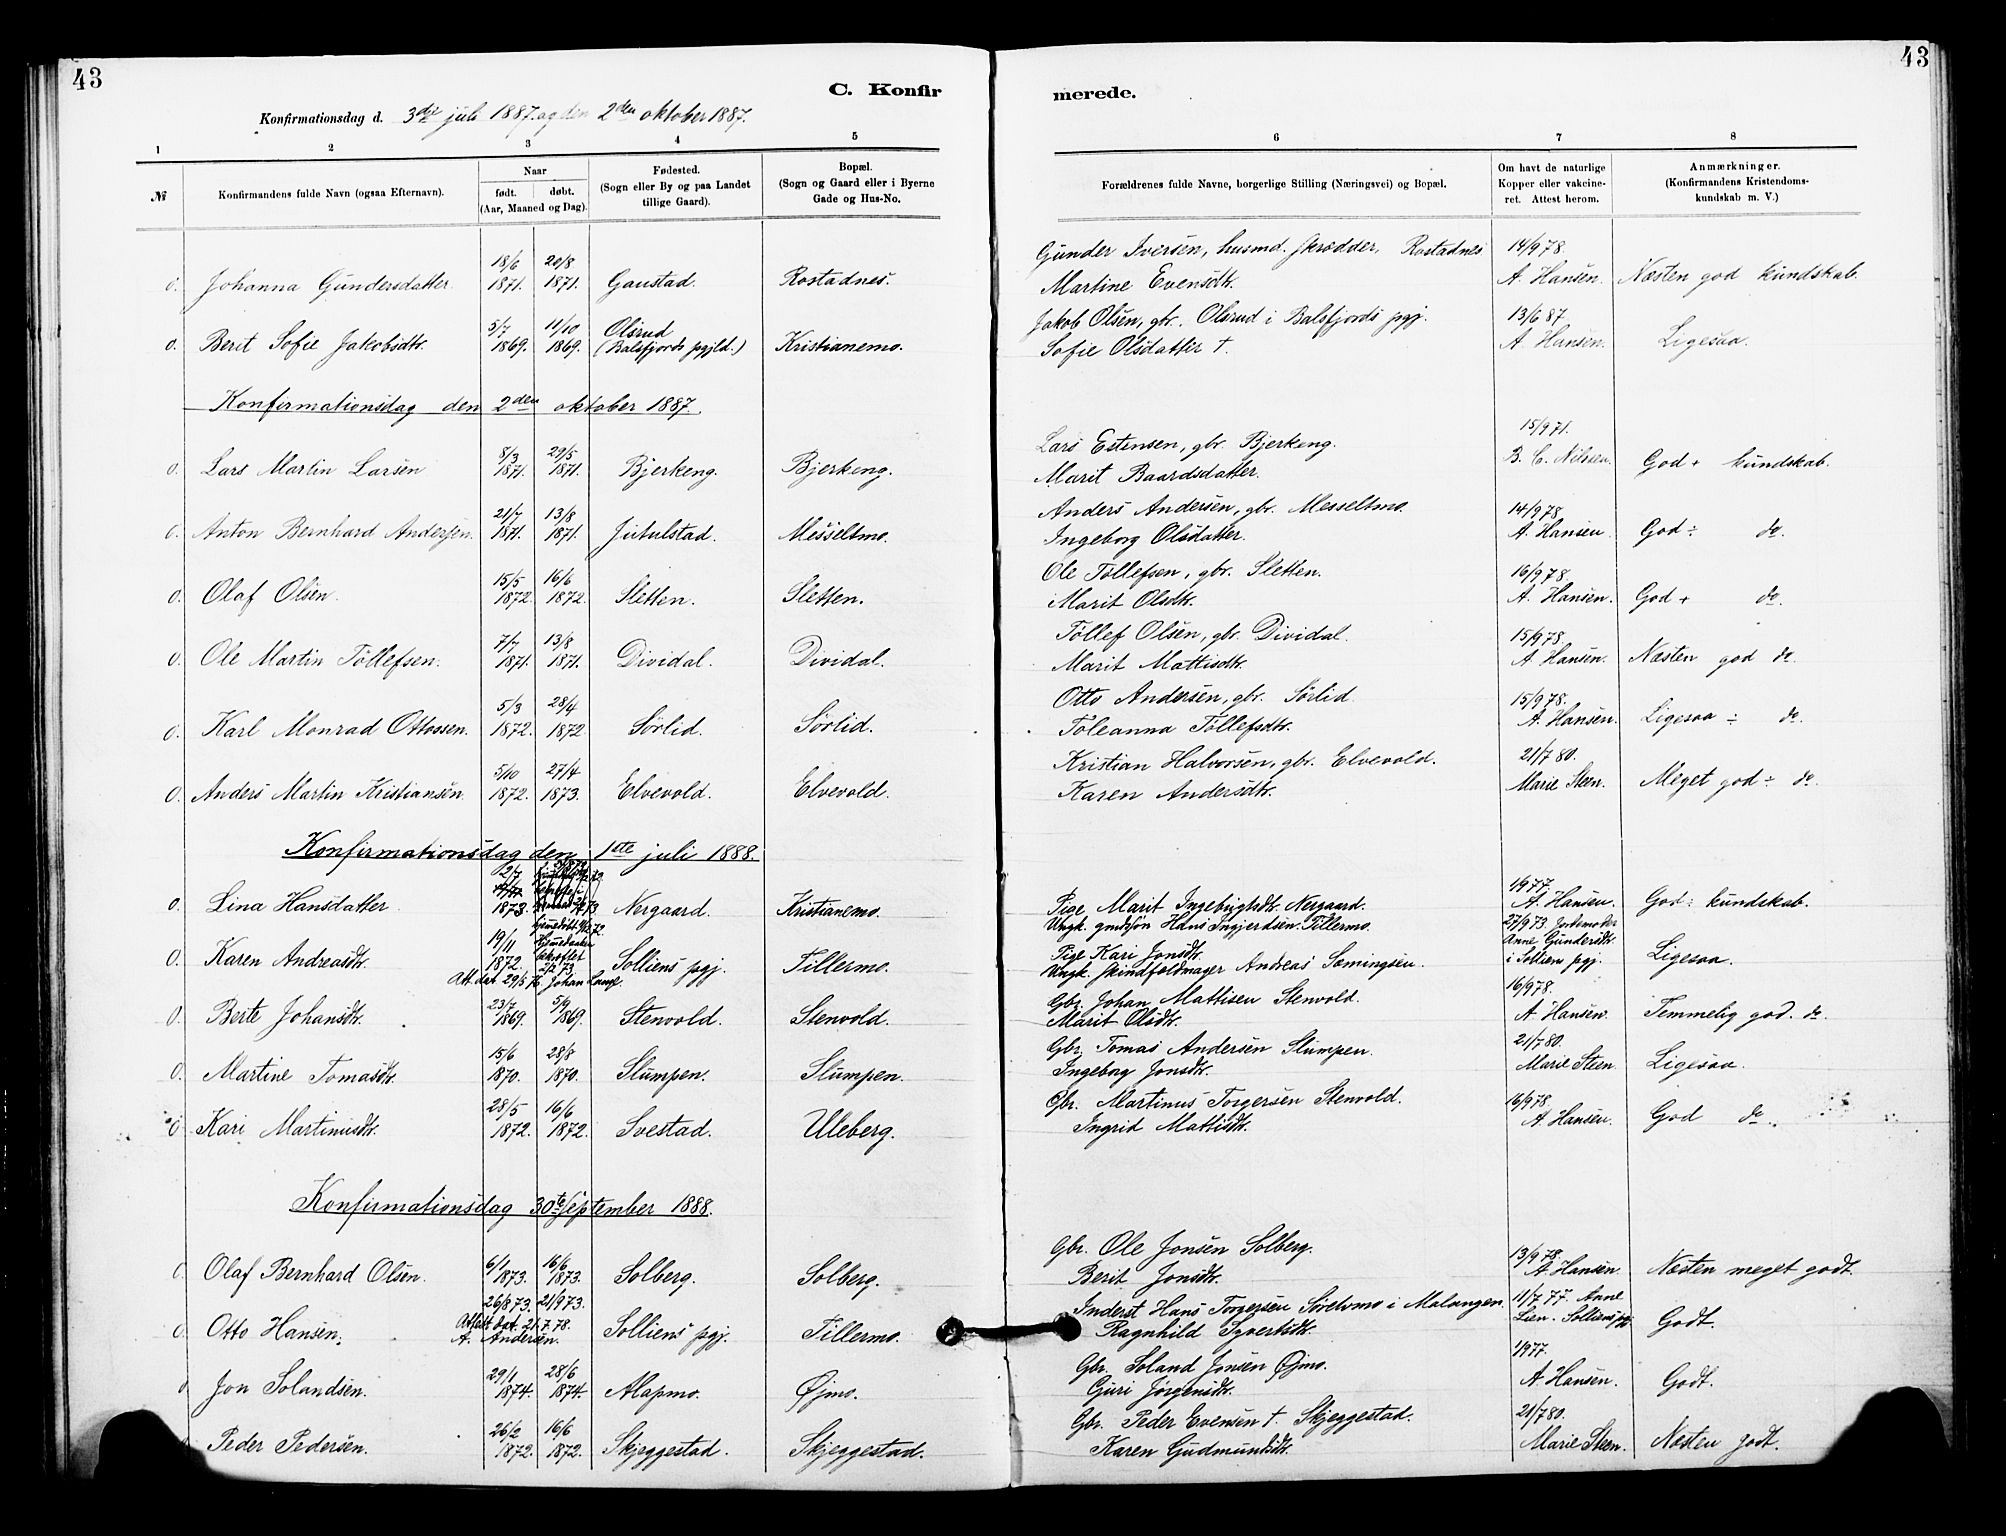 43
43
C. Konfir merede.
Konfirmationsdag d. 3die juli 1887. og den 2den oktober 1887.
1 2 3 4 5 6 7 8
№ Konfirmandens fulde Navn (ogsaa Efternavn).
Naar
født. døbt.
(Aar, Maaned og Dag).
Fødested.
(Sogn eller By og paa Landet
tillige Gaard).
Bopæl.
(Sogn og Gaard eller i Byerne
Gade og Hus-No.
Forældrenes fulde Navne, borgerlige Stilling (Næringsvei) og Bopæl.
Om havt de naturlige
Kopper eller vakcine-
ret. Attest herom.
Anmærkninger.
(Konfirmandens Kristendoms-
kundskab m. V.)
18/6 20/8 Gunder Iversen, husmd. skrædder, Rostadnes 14/9 78.
o. Johanna Gundersdatter 1871. 1871. Gaustad. Rostadnes. Martine Evensdtr. A. Hansen. Næsten god kundskab.
5/7 11/10 Olsrud Jakob Olsen, gbr. Olsrud i Balsfjords pgj. 13/6 87
o. Berit Sofie Jakobsdtr. 1869. 1869. (Balsfjords pgjld.) Kristianemo. Sofie Olsdatter †. A. Hansen. Ligesaa.
Konfirmationsdag den 2den oktober 1887.
8/3 29/5 Lars Estensen, gbr. Bjerkeng. 15/9 71.
o. Lars Martin Larsen 1871. 1871. Bjerkeng. Bjerkeng. Marit Baardsdatter. B. C. Nilsen. God + kundskab.
21/7 13/8 Anders Andersen, gbr. Messeltmo. 14/9 78
o. Anton Bernhard Andersen. 1871. 1871. Jutulstad. Messeltmo. Ingeborg Olsdatter. A. Hansen. God ÷ do.
15/5 16/6 Ole Tollefsen, gbr. Sletten. 16/9 78.
o. Olaf Olsen. 1872. 1872. Sletten. Sletten. Marit Olsdtr. A. Hansen. God + do.
7/7 13/8 Tollef Olsen, gbr. Dividal. 15/9 78.
o. Ole Martin Tollefsen. 1871. 1871. Dividal. Dividal. Marit Mattisdtr. A. Hansen. Næsten god do.
5/3 28/4 Otto Andersen, gbr. Sørlid. 15/9 78.
o. Karl Monrad Ottossen. 1872. 1872. Sørlid. Sørlid. Toleanna Tollefsdtr. A. Hansen. Ligesaa ÷ do.
5/10 27/4 Kristian Halvorsen, gbr. Elvevold. 21/7 80.
o. Anders Martin Kristiansen. 1872. 1873. Elvevold. Elvevold. Karen Andersdtr. Marie Steen. Meget god ÷ do.
Konfirmationsdag den 1ste juli 1888.
2/7 Pige Marit Ingebrigtsdtr. Nergaard. 1/9 77.
o. Lina Hansdatter 1873. Nergaard. Kristianemo. Ungk. gmdsøn Hans Ingjerdsen Tillermo. A. Hansen. God ÷ kundskab.
19/11 Pige Kari Jonsdtr. 27/9 73. Jordemoder
o. Karen Andreasdtr. 1872. 2/2 73 Solliens pgj. Tillermo. Ungk. skindfeldmager Andreas Somingsen. Anne Gundersdtr. i Solliens pgj. Ligesaa.
Att. dat. 29/5 76 Johan Lange.
23/7 5/9 Gbr. Johan Mattisen Stenvold. 16/9 78.
o. Berte Johansdtr. 1869. 1869. Stenvold. Stenvold. Marit Olsdtr. A. Hansen. Temmelig god. do.
15/6 28/8 Gbr. Tomas Andersen Slumpen. 21/7 80.
o. Martine Tomasdtr. 1870. 1870. Slumpen. Slumpen. Ingeborg Jonsdtr. Marie Steen. Ligesaa.
28/5 16/6 Gbr. Martinus Torgersen Stenvold. 16/9 78.
o. Kari Martinusdtr. 1872. 1872. Svestad. Uleberg. Ingrid Mattisdtr. A. Hansen. God do.
Konfirmationsdag 30te september 1888.
6/1 16/6 Gbr. Ole Jonsen Solberg. 13/9 78.
o. Olaf Bernhard Olsen. 1873. 1873. Solberg. Solberg. Berit Jonsdtr. A. Hansen. Næsten meget godt.
26/8 73. 21/9 73. Inderst Hans Torgersen Søretmo i Malangen. 11/7 77. Anne
o. Otto Hansen. Attest dat. 21.7.78. A. Andersen. Solliens pgj. Tillermo. Ragnhild Syvertsdtr. Lien. Solliens pgj. Godt.
29/1 28/6 Gbr. Soland Jonsen Øjmo. 1/9 77.
o. Jon Solandsen. 1874. 1874. Alapmo. Øjmo. Guri Jørgensdtr. A. Hansen. Godt.
26/2 16/6 Gbr. Peder Evensen †. Skjeggestad. 21/7 80.
Peder Pedersen. 1872. 1872. Skjeggestad. Skjeggestad. Karen Gudmundsdtr. Marie Steen. Næsten godt.